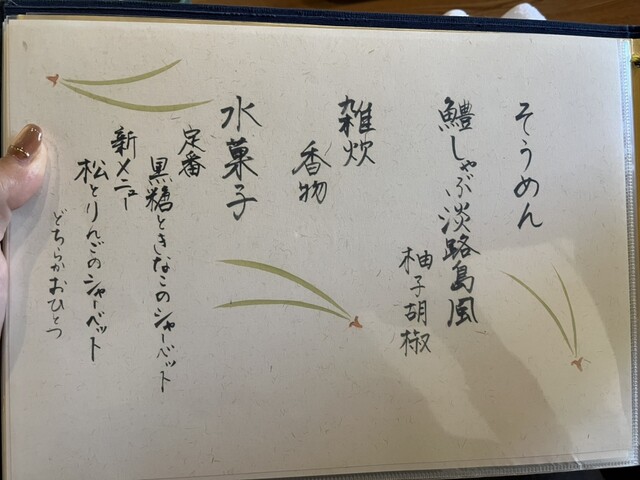 そうめん
鱧しゃぶ淡路島風
柚子胡椒
雑炊
香物
水菓子
定番
黒糖ときなこのシャーベット
新メニュー
松とりんごのシャーベット
どちらかおひとつ